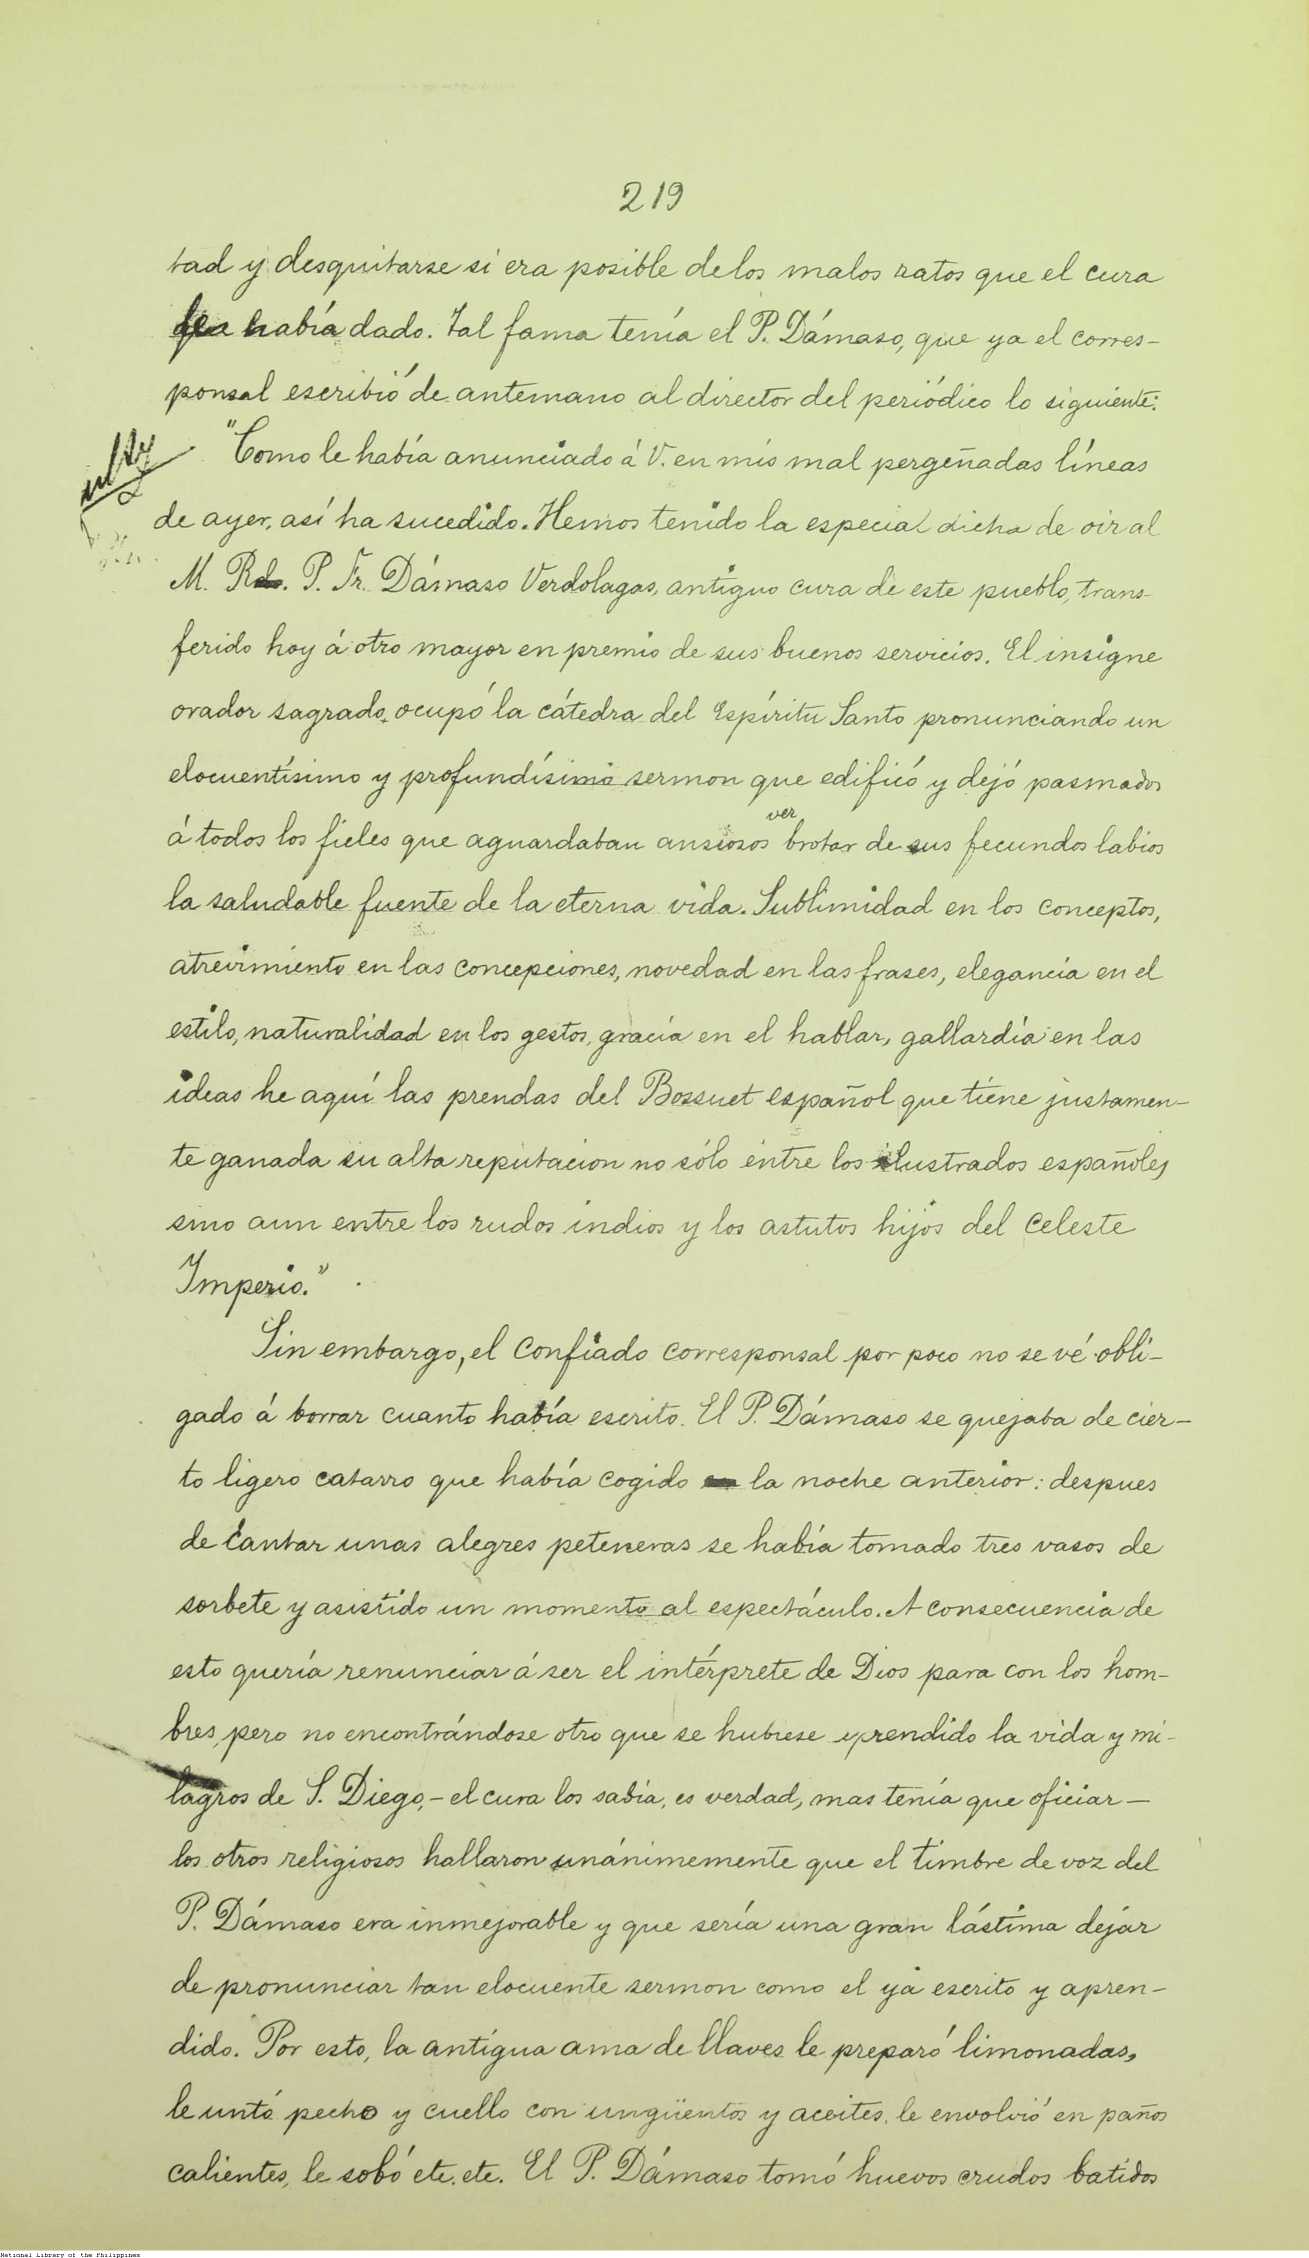 219
tad y desquitarse si era posible de los malos ratos que el cura
había dado. Tal fama tenía el P. Dámaso, que ya el corres-
ponsal escribió de antemano al director del periódico lo siguiente:
"Como le había anunciado á V. en mis mal pergeñadas líneas
de ayer, así ha sucedido. Hemos tenido la especial dicha de oir al
M. R. P. Fr. Dámaso Verdolagas, antiguo cura de este pueblo, trans-
ferido hoy á otro mayor en premio de sus buenos servicios. El insigne
orador sagrado ocupó la cátedra del Espíritu Santo pronunciando un
elocuentísimo y profundísimo sermon que edificó y dejó pasmados
á todos los fieles que aguardaban ansiosos ver brotar de sus fecundos labios
la saludable fuente de la eterna vida. Sublimidad en los conceptos,
atrevimiento en las concepciones, novedad en las frases, elegancia en el
estilo, naturalidad en los gestos, gracia en el hablar, gallardía en las
ideas he aquí las prendas del Bossuet español que tiene justamen-
te ganada su alta reputacion no sólo entre los ilustrados españoles
sino aun entre los rudos indios y los astutos hijos del Celeste
Imperio."
Sin embargo, el confiado corresponsal por poco no se vé obli-
gado á borrar cuanto había escrito. El P. Dámaso se quejaba de cier-
to ligero catarro que había cogido la noche anterior: despues
de cantar unas alegres peteneras se había tomado tres vasos de
sorbete y asistido un momento al espectáculo. A consecuencia de
esto quería renunciar á ser el intérprete de Dios para con los hom-
bres, pero no encontrándose otro que se hubiese aprendido la vida y mi-
lagros de S. Diego,- el cura los sabía, es verdad, mas tenía que oficiar-
los otros religiosos hallaron unánimemente que el timbre de voz del
P. Dámaso era inmejorable y que sería una gran lástima dejar
de pronunciar tan elocuente sermon como el ya escrito y apren-
dido. Por esto, la antigua ama de llaves le preparó limonadas,
le untó pecho y cuello con ungüentos y aceites, le envolvió en paños
calientes, le sobó etc. etc. El P. Dámaso tomó huevos crudos batidos
National Library of the Philippines